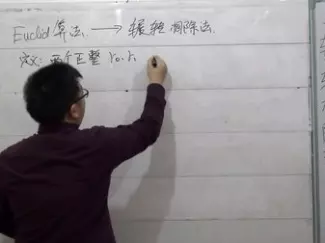 Euclid算法 → 辗转相除法
定义: 两个正整 r₀, r₁